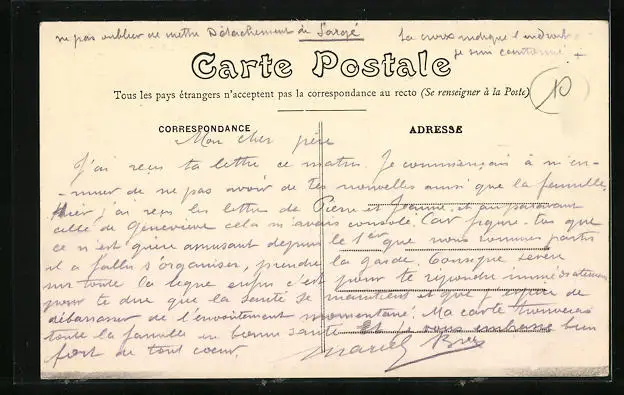 ne pas oublier de mettre Détachement de Sargé
La croix indique l'endroit
je suis cantonné +
Carte Postale
Tous les pays étrangers n'acceptent pas la correspondance au recto (Se renseigner à la Poste)
10
CORRESPONDANCE
ADRESSE
Mon cher père
J'ai reçu ta lettre ce matin. Je commençais à m'en-
-nuyer de ne pas avoir de tes nouvelles ainsi que la famille
Hier j'ai reçu les lettres de Pierre et Jeanne et auparavant
celle de Geneviève cela m'avais consolé. Car figure-tus que
ce n'est guère amusant depuis le 1er que nous sommes partis
il a fallu s'organiser, prendre la garde. Consigne sévère
sur toute la ligne enfin c'est pour te répondre immédiatement
pour te dire que la santé se maintient et que j'espère de
débarasser de l'envoitement momentané. Ma carte trouvera
toute la famille en bonne santé et je vous embrasse bien
fort de tout coeur.
Marcel